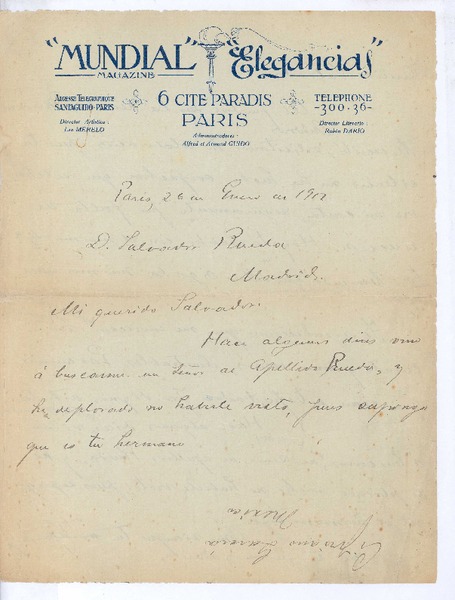 "MUNDIAL" "Elegancias"
MAGAZINE
ADRESSE TELEGRAPHIQUE
SANTAGUIDO-PARIS
6 CITE PARADIS
TELEPHONE
-300.36-
PARIS
Director Artistico:
Leo MERELO
Administradores:
Alfred et Armand GUIDO
Director Literario:
Rubén DARÍO
Paris, 26 de Enero de 1912
D. Salvador Rueda
Madrid.
Mi querido Salvador:
Hace algunos dias vino
á buscarme un Señor de Apellido Rueda, y
he deplorado no haberle visto, pues supongo
que es tu hermano
García
Mexico